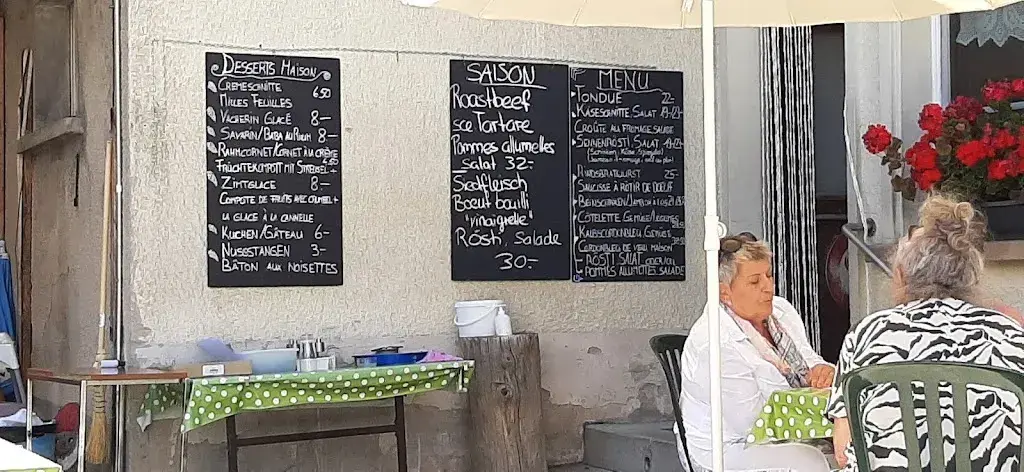 DESSERTS MAISON
CREMESCHNITTE 6.50
MILLES FEUILLES
VACHERIN GLACÉ 8.-
SAVARIN/BABA AU RHUM 8.-
RAHMCORNET/CORNET À LA CRÈME
FRÜCHTEKOMPOTT MIT STREUSEL + 6.50
ZIMTGLACE 8.-
COMPOTE DE FRUITS AVEC CRUMBEL +
LA GLACE À LA CANNELLE
KUCHEN/GÂTEAU 6.-
NUSSSTANGEN 3.-
BÂTON AUX NOISETTES
SAISON
Roastbeef
sce Tartare
Pommes allumettes
salat 32.-
Siedfleisch
Boeuf bouilli
"vinaigrette"
Rösti, Salade
30.-
MENU
FONDUE 22.-
KÄSESCHNITTE, SALAT
CROÛTE AU FROMAGE, SALADE
SENNENRÖSTI, SALAT
(Schinken, Käse, Spiegelei)
RINDSBRATWURST 25.-
SAUCISSE À RÔTIR DE BOEUF
BEINSCHINKEN/JAMBON À L'OS
CÔTELETTE GEMÜSE/LÉGUMES
KALBSCORDONBLEU GEMÜSE
CORDONBLEU DE VEAU MAISON
RÖSTI SALAT
POMMES ALLUMETTES SALADE